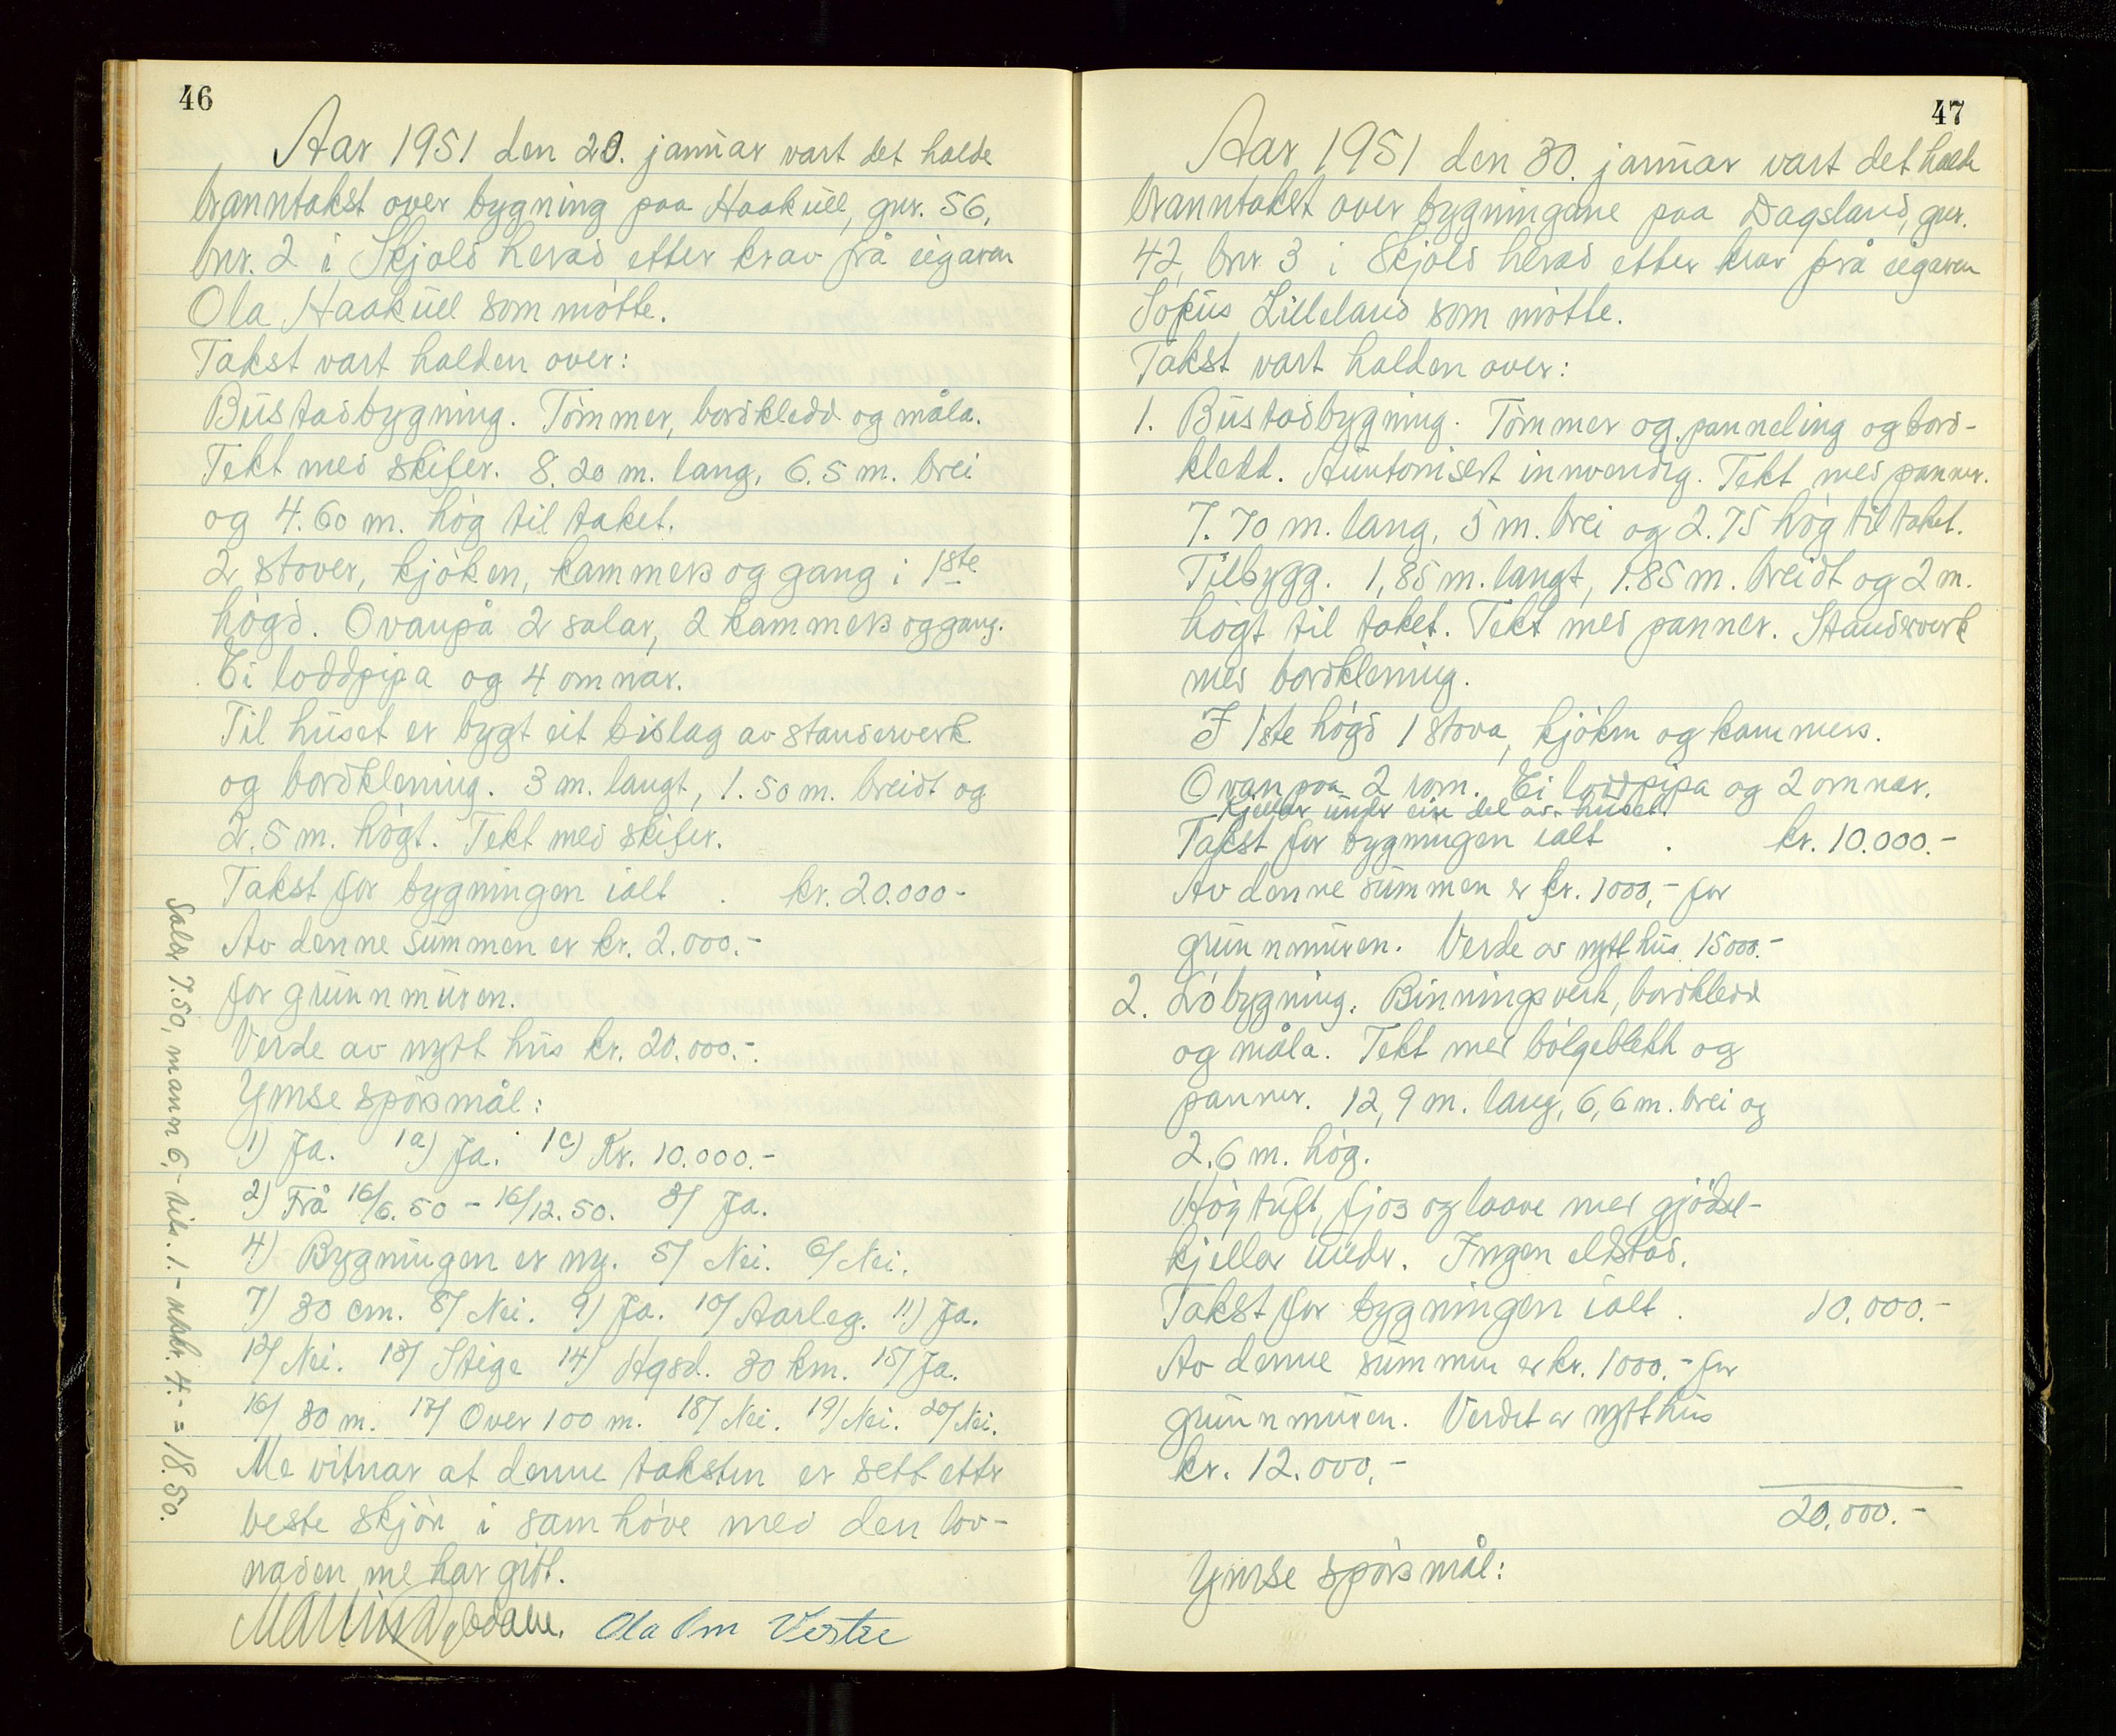 46
Aar 1951 den 20. januar vart det halde
branntakst over bygning paa Haakull, gnr. 56,
bnr. 2 i Skjold herad etter krav frå eigaren
Ola Haakull som møtte.
Takst vart halden over:
Bustadbygning. Tømmer, bordkledd og måla.
Tekt med skifer. 8.20 m. lang, 6.5 m. brei
og 4.60 m. høg til taket.
2 stover, kjøken, kammers og gang i 1ste
høgd. Ovanpå 2 salar, 2 kammers og gang.
Ei loddpipa og 4 omnar.
Til huset er bygt eit bislag av standerverk
og bordklening. 3 m. langt, 1.50 m. breidt og
2.5 m. høgt. Tekt med skifer.
Takst for bygningen ialt . kr. 20.000-
Av denne summen er kr. 2.000.-
for grunnmuren.
Verde av nytt hus kr. 20.000.-.
Ymse spørsmål:
1) Ja. 1a) Ja. 1c) Kr. 10.000.-
2) Frå 16/6. 50 - 16/12. 50. 3/ Ja.
4) Bygningen er ny. 5/ Nei. 6/ Nei.
7) 30 cm. 8/ Nei. 9) Ja. 10/ Aarleg. 11) Ja.
12/ Nei. 13/ Stige 14) Hgsd. 30 km. 15/ Ja.
16/ 30 m. 17/ Over 100 m. 18/ Nei. 19/ Nei. 20/ Nei.
Me vitnar at denne taksten er sett etter
beste skjøn i samhøve med den lov-
naden me har gitt.
Ola Om Vestre
Salær 7.50, mann 6,- tils. 1.- utskr. 4.- = 18.50.
47
Aar 1951 den 30. januar vart det halde
branntakst over bygningane paa Dagsland, gnr.
42, bnr 3 i Skjold herad etter krav frå eigaren
Sofus Lilleland som møtte.
Takst vart halden over:
1. Bustadbygning. Tømmer og panneling og bord-
kledd. Huntonisert innvendig. Tekt med panner.
7.70 m. lang, 5 m. brei og 2.75 høg til taket.
Tilbygg. 1,85 m. langt, 1.85 m. breidt og 2 m.
høgt til taket. Tekt med panner. Standerverk
med bordklening.
I 1ste høgd 1 stova, kjøken og kammers.
Ovanpaa 2 rom. Ei loddpipa og 2 omnar.
Kjellar under ein del av huset.
Takst for bygningen ialt . kr. 10.000.-
Av denne summen er kr. 1000,- for
grunnmuren. Verde av nytt hus 15000.-
2. Løbygning. Binningsverk, bordkledd
og måla. Tekt med bølgeblekk og
panner. 12,9 m. lang, 6,6 m. brei og
2.6 m. høg.
Høgtuft, fjos og laave med gjødsel-
kjellar under. Ingen eldstad.
Takst for bygningen ialt . 10.000.-
Av denne summen er kr. 1000.- for
grunnmuren. Verdet av nytt hus
kr. 12.000,-
20.000.-
Ymse spørsmål: